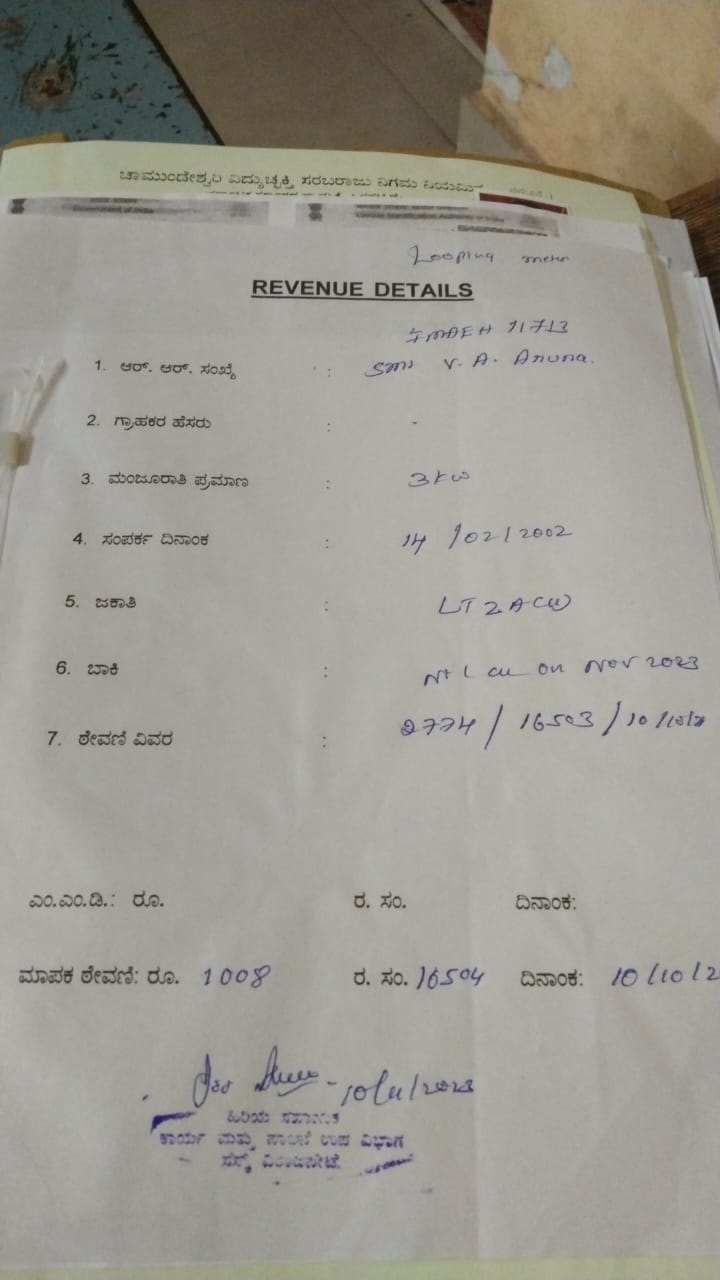 ಚಾಮುಂಡೇಶ್ವರಿ ವಿದ್ಯುಚ್ಛಕ್ತಿ ಸರಬರಾಜು ನಿಗಮ ನಿಯಮಿತ
Looping meter
REVENUE DETAILS
11713
1. ಆರ್. ಆರ್. ಸಂಖ್ಯೆ : Smt V. A. Aruna.
2. ಗ್ರಾಹಕರ ಹೆಸರು : -
3. ಮಂಜೂರಾತಿ ಪ್ರಮಾಣ : 3kw
4. ಸಂಪರ್ಕ ದಿನಾಂಕ : 14/02/2002
5. ಜಕಾತಿ : LT2A
6. ಬಾಕಿ : on Nov 2023
7. ಠೇವಣಿ ವಿವರ : 2774/16503/10/10/2
ಎಂ.ಎಂ.ಡಿ.: ರೂ. ರ. ಸಂ. ದಿನಾಂಕ:
ಮಾಪಕ ಠೇವಣಿ: ರೂ. 1008 ರ. ಸಂ. 16504 ದಿನಾಂಕ: 10/10/2
10/11/2023
ಹಿರಿಯ ಸಹಾಯಕ
ಕಾರ್ಯ ಮತ್ತು ಪಾಲನೆ ಉಪ ವಿಭಾಗ
ಸೆಸ್ಕ್ ವಿರಾಜಪೇಟೆ